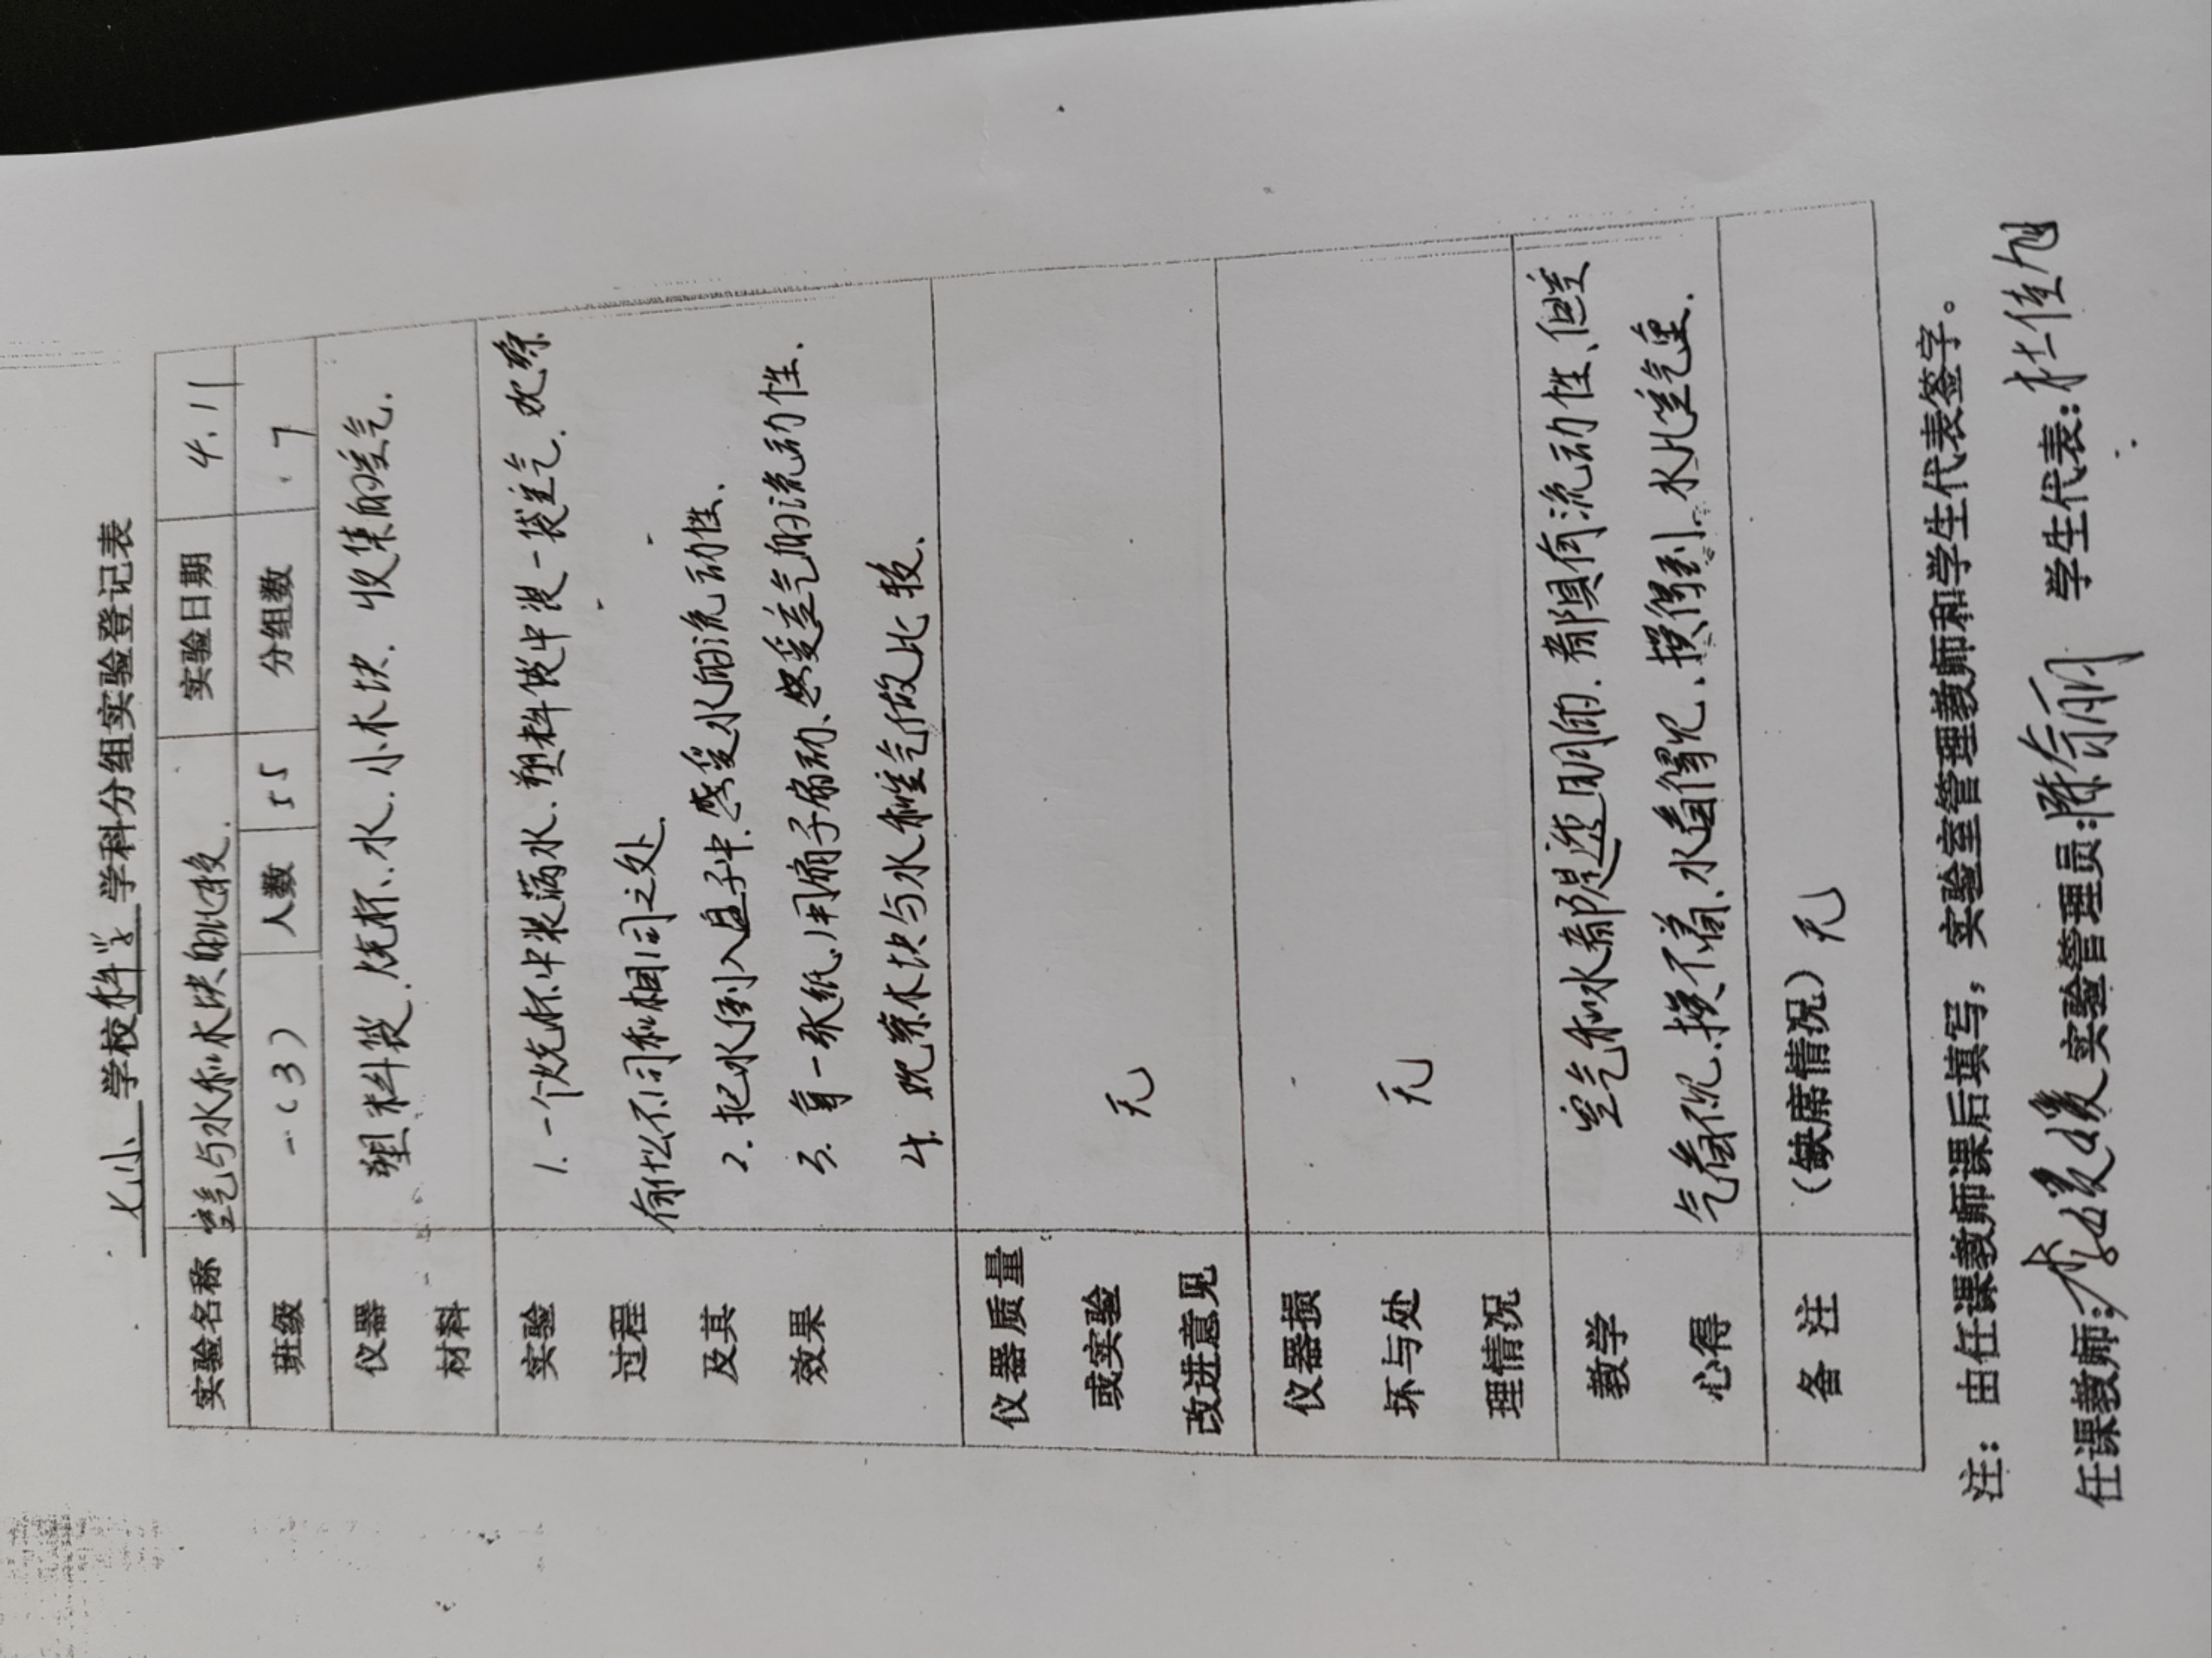 七小 学校 科学 学科分组实验登记表
实验名称 空气与水和木块的比较. 实验日期 4.11
班级 一(3) 人数 55 分组数 7
仪器材料 塑料袋、烧杯、水、小木块、收集的空气.
实验过程及其效果
1. 一个烧杯中装满水、塑料袋中装一袋空气、观察
有什么不同和相同之处.
2. 把水倒入盘子中、感受水的流动性、
3. 拿一张纸、用扇子扇动、感受空气的流动性、
4. 观察木块与水和空气做比较、
仪器质量或实验改进意见 无
仪器损坏与处理情况 无
教学心得
空气和水都是透明的、都具有流动性、但空
气看不见、摸不着、水看得见、摸得到、水比空气重.
备注 (缺席情况) 无
注：由任课教师课后填写；实验室管理教师和学生代表签字。
任课教师: 李媛媛 实验管理员: 学生代表: 杜佳旭